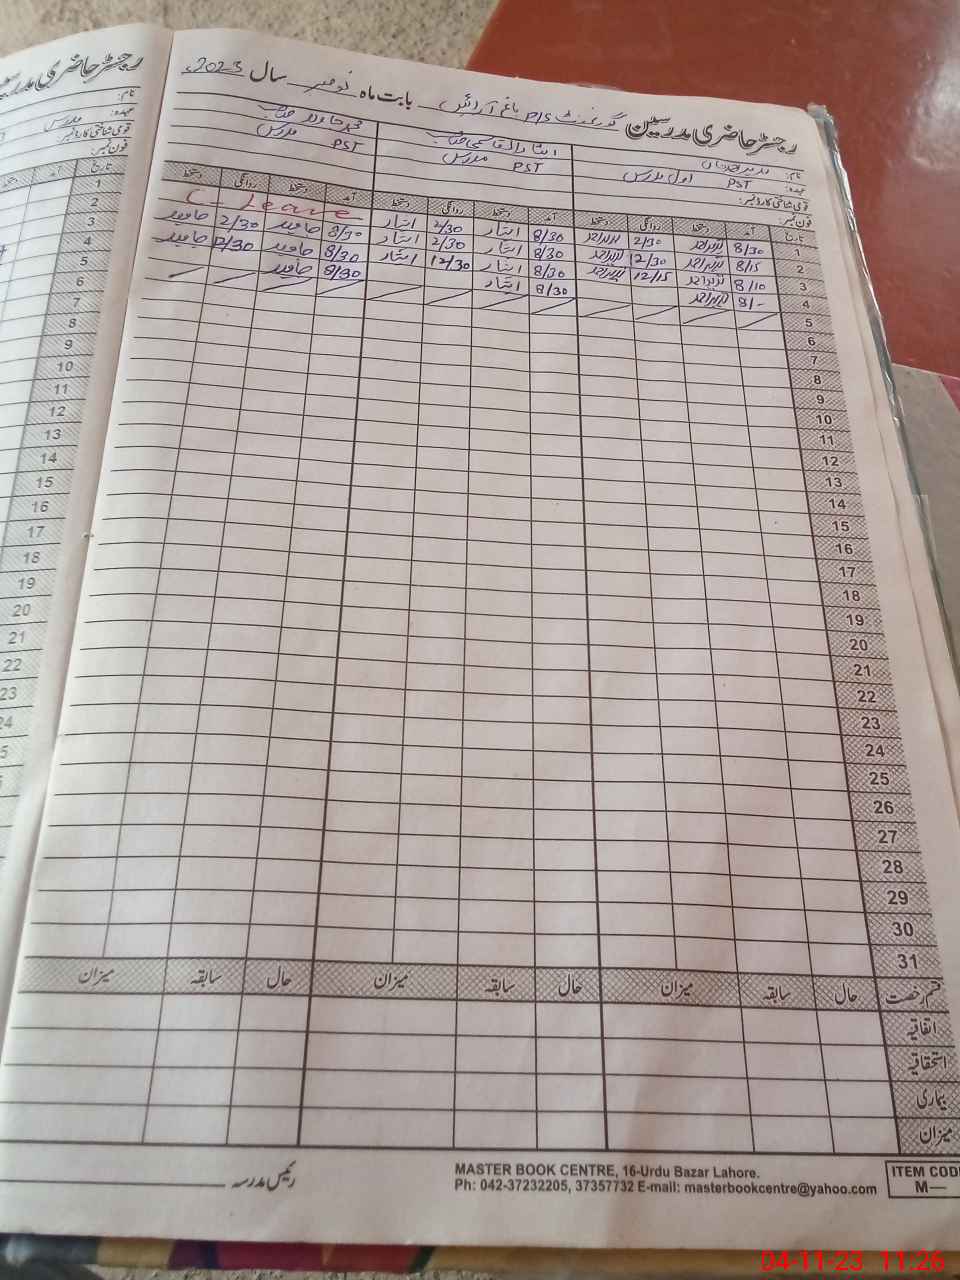 رجسٹر حاضری مدرسین گورنمنٹ P/S باغ آرائیں بابت ماہ نومبر سال 2023ء
نام:
عہدہ: PST اول مدرس
مدرس PST
محمد جاوید صاحب
مدرس PST
قومی شناختی کارڈ نمبر:
فون نمبر:
تاریخ آمد دستخط روانگی دستخط آمد دستخط روانگی دستخط آمد دستخط روانگی دستخط
1 8/30 2/30 8/30 2/30 C - Leave
2 8/15 12/30 8/30 2/30 8/30 جاوید 2/30 جاوید
3 8/10 12/15 8/30 12/30 8/30 جاوید 12/30 جاوید
4 8/- 8/30 8/30 جاوید
5
6
7
8
9
10
11
12
13
14
15
16
17
18
19
20
21
22
23
24
25
26
27
28
29
30
31
قسم رخصت حال سابقہ میزان حال سابقہ میزان حال سابقہ میزان
اتفاقیہ
استحقاقیہ
بیماری
میزان
رئیس مدرسہ
MASTER BOOK CENTRE, 16-Urdu Bazar Lahore.
Ph: 042-37232205, 37357732 E-mail: masterbookcentre@yahoo.com
ITEM COD
M—
رجسٹر حاضری مدرسین
نام:
عہدہ: مدرس
قومی شناختی کارڈ نمبر:
فون نمبر:
تاریخ آمد دستخط
1
2
3
4
5
6
7
8
9
10
11
12
13
14
15
16
17
18
19
20
21
22
23
24
04-11-23 11:26